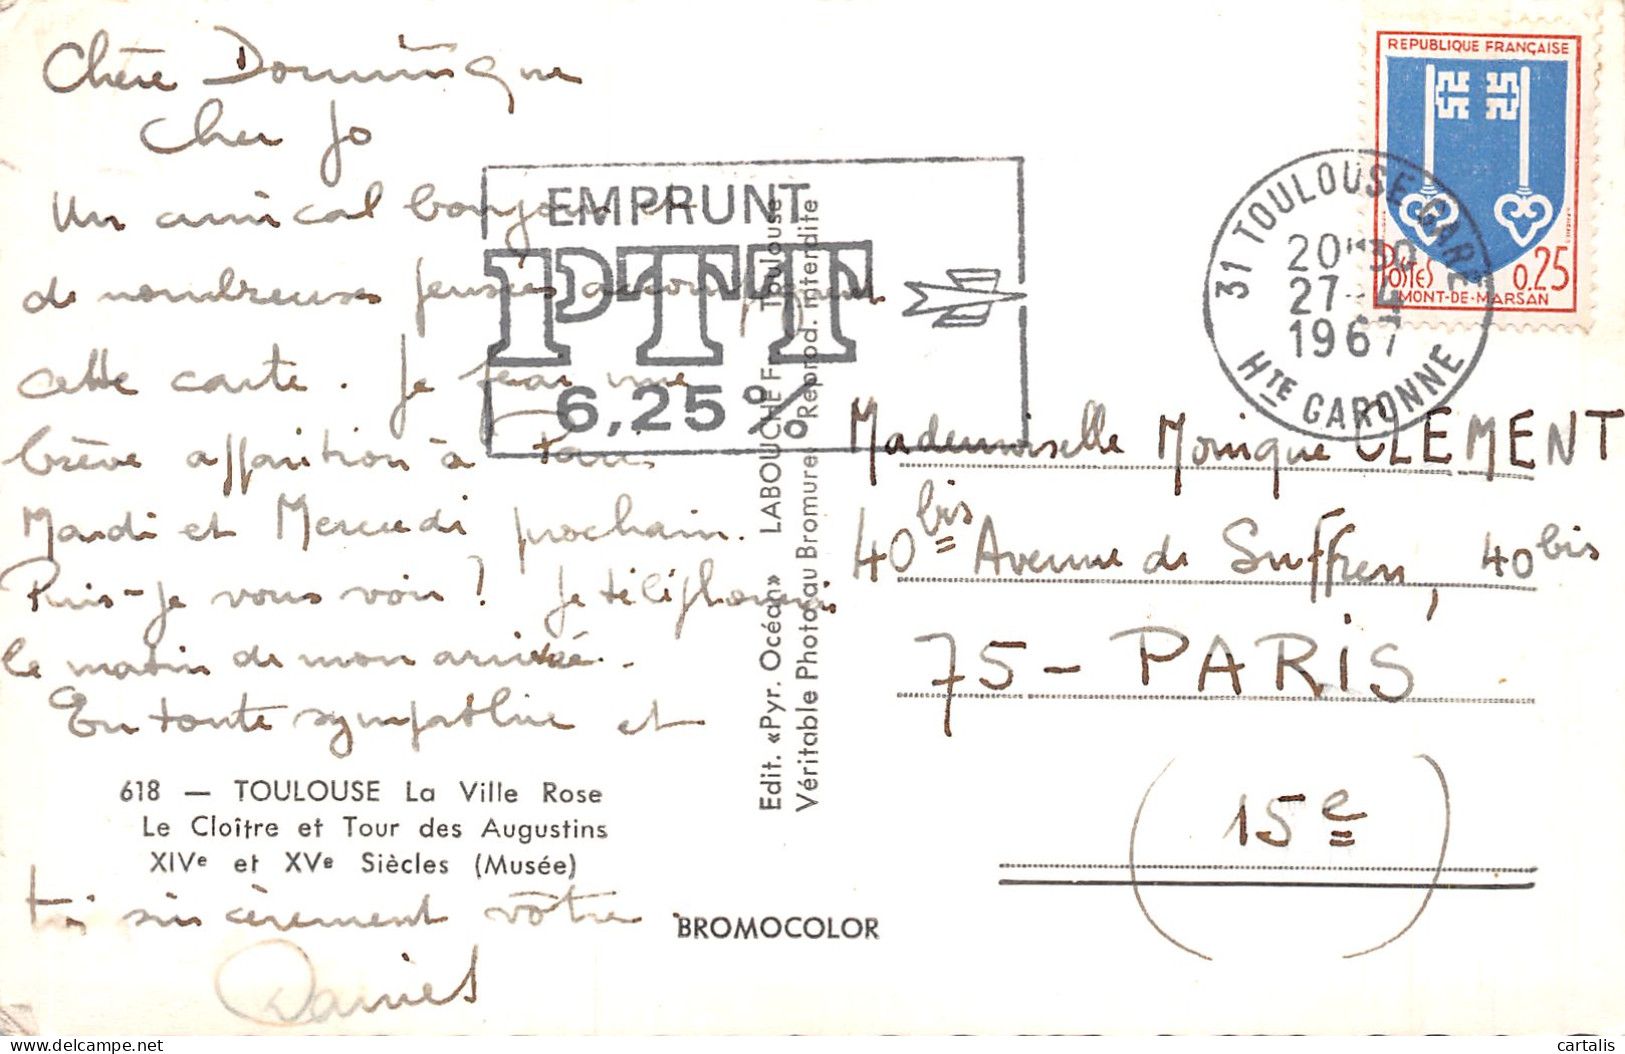 Chère Dominique
Cher Jo
Un amical bonjour et
de nombreuses pensées accompagnent
cette carte. Je ferai une
brève apparition à Paris
Mardi et Mercredi prochain.
Puis-je vous voir? Je téléphonerai
le matin de mon arrivée.
En toute sympathie et
618 — TOULOUSE La Ville Rose
Le Cloître et Tour des Augustins
XIVe et XVe Siècles (Musée)
très sincèrement vôtre
Daniel
BROMOCOLOR
EMPRUNT
PTT
6,25%
Edit. «Pyr. Océan» LABOUCHE Fr. Toulouse
Véritable Photo au Bromure - Reprod. interdite
REPUBLIQUE FRANÇAISE
POSTES 0,25
MONT-DE-MARSAN
31 TOULOUSE-GARE
20H30
27-4
1967
HTE GARONNE
Mademoiselle Monique CLEMENT
40bis Avenue de Suffren, 40bis
75-PARIS
(15e)
delcampe.net
cartalis